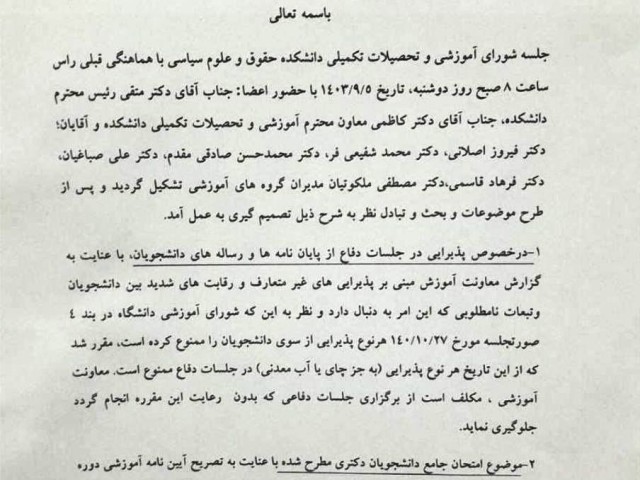 باسمه تعالی
جلسه شورای آموزشی و تحصیلات تکمیلی دانشکده حقوق و علوم سیاسی با هماهنگی قبلی راس
ساعت ۸ صبح روز دوشنبه، تاریخ ۱۴۰۳/۹/۵ با حضور اعضا: جناب آقای دکتر متقی رئیس محترم
دانشکده، جناب آقای دکتر کاظمی معاون محترم آموزشی و تحصیلات تکمیلی دانشکده و آقایان؛
دکتر فیروز اصلانی، دکتر محمد شفیعی فر، دکتر محمدحسن صادقی مقدم، دکتر علی صباغیان،
دکتر فرهاد قاسمی،دکتر مصطفی ملکوتیان مدیران گروه های آموزشی تشکیل گردید و پس از
طرح موضوعات و بحث و تبادل نظر به شرح ذیل تصمیم گیری به عمل آمد.
۱-درخصوص پذیرایی در جلسات دفاع از پایان نامه ها و رساله های دانشجویان، با عنایت به
گزارش معاونت آموزش مبنی بر پذیرایی های غیر متعارف و رقابت های شدید بین دانشجویان
وتبعات نامطلوبی که این امر به دنبال دارد و نظر به این که شورای آموزشی دانشگاه در بند ٤
صورتجلسه مورخ ۱۴۰/۱۰/۲۷ هرنوع پذیرایی از سوی دانشجویان را ممنوع کرده است، مقرر شد
که از این تاریخ هر نوع پذیرایی (به جز چای یا آب معدنی) در جلسات دفاع ممنوع است. معاونت
آموزشی ، مکلف است از برگزاری جلسات دفاعی که بدون رعایت این مقرره انجام گردد
جلوگیری نماید.
۲-موضوع امتحان جامع دانشجویان دکتری مطرح شده با عنایت به تصریح آیین نامه آموزشی دوره